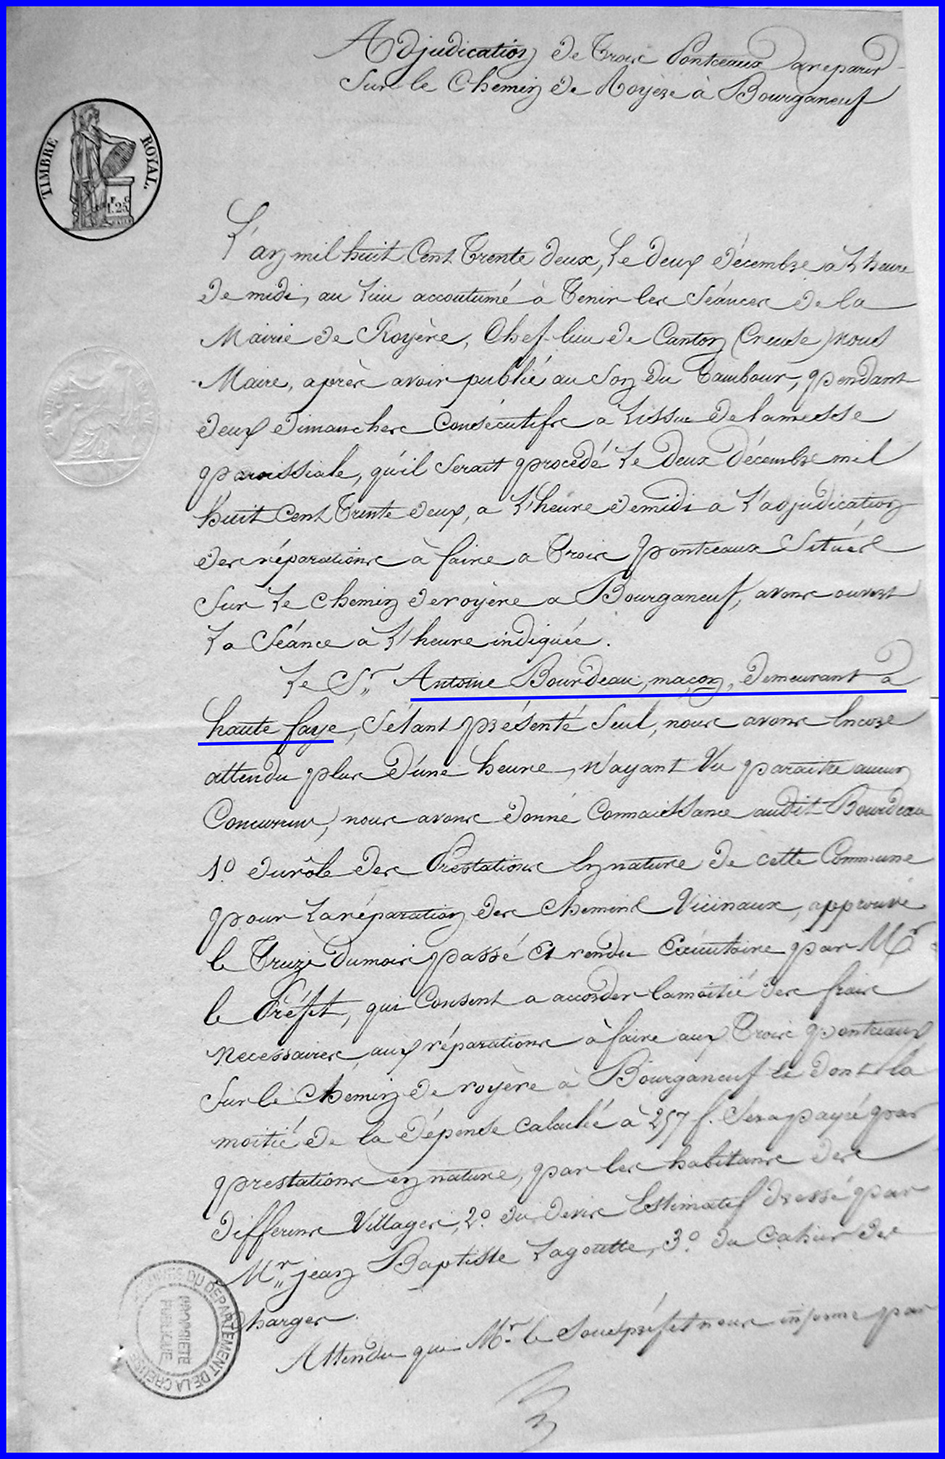 Adjudication de Trois Ponteaux a reparer
Sur le Chemin de Royère à Bourganeuf
TIMBRE ROYAL.
1.25
L'an mil huit Cent Trente deux, Le deux décembre a L'heure
de midi, au Lieu accoutumé à Tenir les Séances de la
Mairie de Royère, Chef-lieu de Canton (Creuse) nous
Maire, après avoir publié au Son du Tambour, pendant
deux dimanches Consécutifs a L'issue de la messe
paroissiale, qu'il Serait procédé Le deux décembre mil
huit Cent Trente deux, a L'heure de midi a L'adjudication
des réparations à faire a Trois ponteaux Situés
Sur Le Chemin de royère a Bourganeuf, avons ouvert
La Séance a L'heure indiquée.
Le Sr. Antoine Bourdeau, maçon, demeurant à
haute faye, S'étant présenté Seul, nous avons Encore
attendu plus d'une heure, N'ayant Vu paraitre aucun
Concurrent, nous avons donné Connaissance audit Bourdeau
1.o du rôle des Prestations En nature de cette Commune
pour La réparation des Chemins Vicinaux, approuvé
le Treize du mois passé et rendu Exécutoire par Mr
le Préfet, qui Consent a accorder la moitié des frais
necessaires aux réparations à faire aux Trois ponteaux
Sur le Chemin de royère à Bourganeuf et dont la
moitié de la dépense calculée à 257 f. Sera payé par
prestations en nature, par les habitans des
differens Villages, 2.o du devis Estimatif dressé par
Mr. jean Baptiste Lagoutte, 3.o du Cahier des
Charges.
Attendu que Mr. le Sous préfet nous informe par
DU DEPARTEMENT DE LA CREUSE
PROPRIETE PUBLIQUE